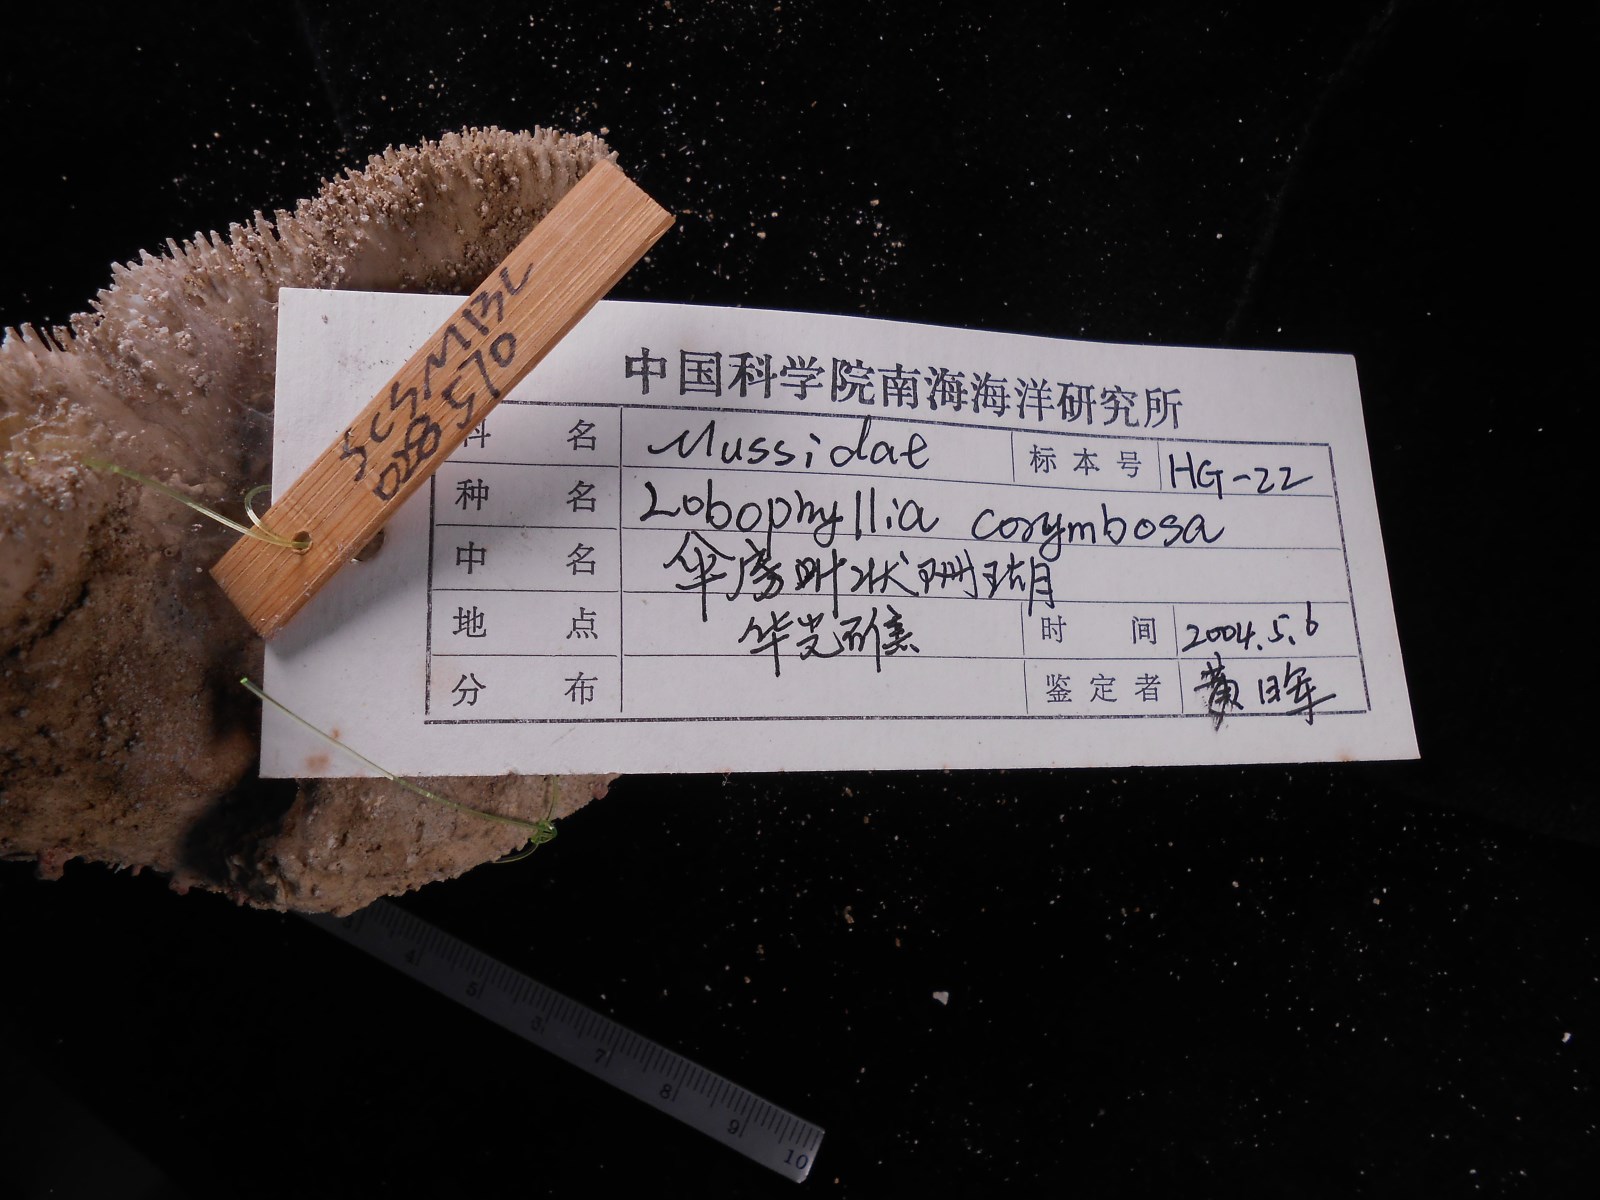 SCSMBL
028570
中国科学院南海海洋研究所
科名 Mussidae 标本号 HG-22
种名 Lobophyllia corymbosa
中名 伞房叶状珊瑚
地点 华光礁 时间 2004.5.6
分布 鉴定者 黄晖
3 4 5 6 7 8 9 10